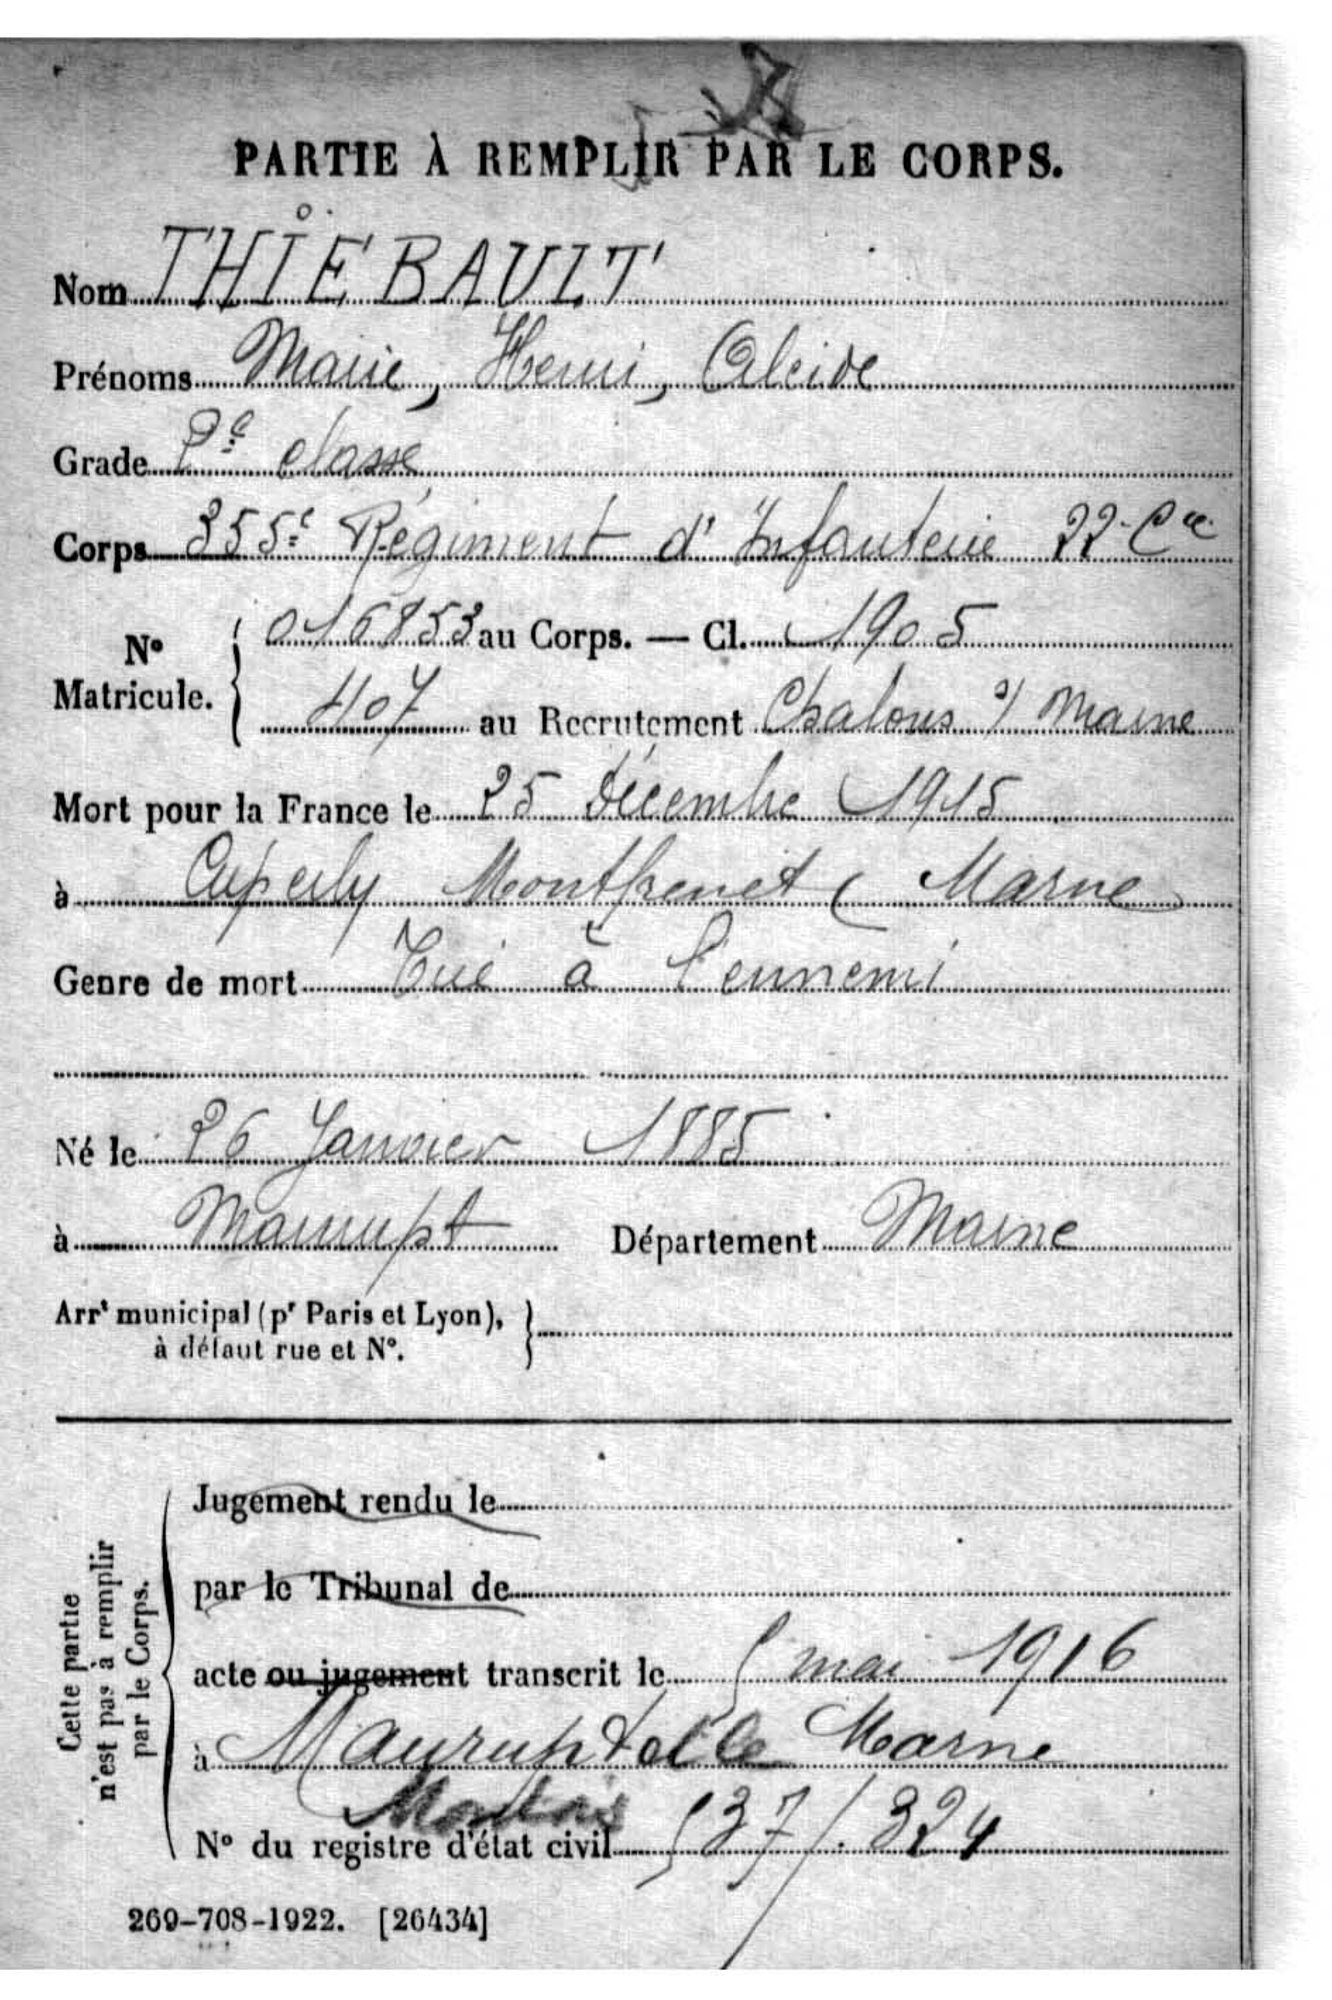 PARTIE À REMPLIR PAR LE CORPS.
Nom THIÉBAULT
Prénoms Marie, Henri, Alcide
Grade 2e classe
Corps 355e Régiment d'Infanterie 22 Cie
No Matricule. 016853 au Corps. — Cl. 1905
407 au Recrutement Chalons s/ Marne
Mort pour la France le 25 Décembre 1915
à Cuperly Montfrenet (Marne
Genre de mort Tué à l'ennemi
Né le 26 Janvier 1885
à Maurupt Département Marne
Arrt municipal (pr Paris et Lyon),
à défaut rue et No.
Cette partie
n'est pas à remplir
par le Corps.
Jugement rendu le
par le Tribunal de
acte ou jugement transcrit le mai 1916
à Maurupt et le Marne
No du registre d'état civil 37/324
269-708-1922. [26434]